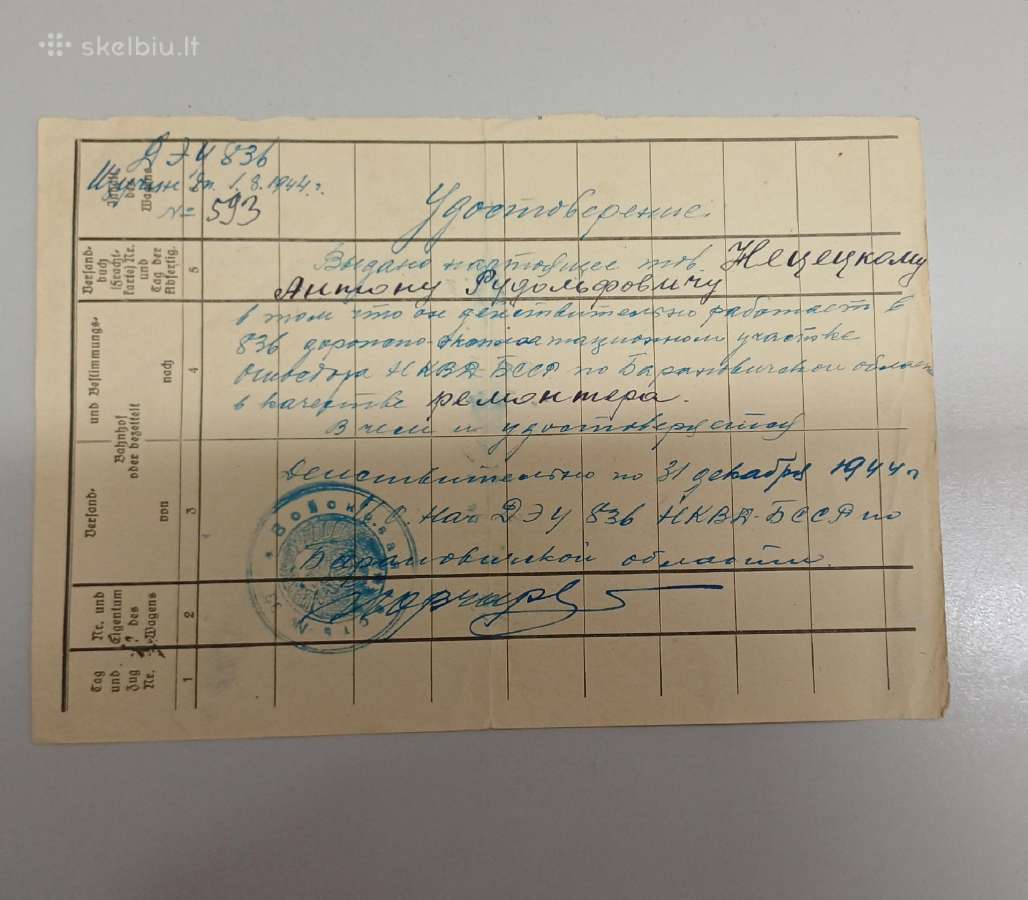 skelbiu.lt
ДЭУ 836
Дп. 1.8.1944 г.
№ 593
Удостоверение.
Выдано настоящее тов. Нецецкому
Антону Рудольфовичу
в том что он действительно работает в
836 дорожно-эксплоатационном участке
Ошосдора НКВД-БССР по Барановичской области
в качестве ремонтера.
В чем и удостоверяется
Действительно по 31 декабря 1944 г
Нач ДЭУ 836 НКВД-БССР по
Барановичской области.
Войсковая
Inhalt des Wagens
Versand-
buch
(Fracht-
karte) Nr.
und
Tag der
Abfertig.
5
Versand- und Bestimmungs-
Bahnhof
oder bezettelt
nach
4
von
3
Nr. und
Eigentum
des
Wagens
2
Tag
und
Zug
Nr.
1